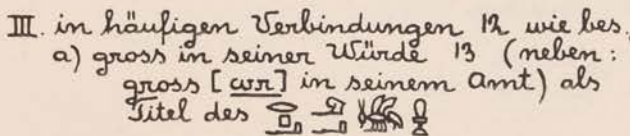 III. in häufigen Verbindungen 12 wie bes.
a) gross in seiner Würde 13 (neben:
gross [wr] in seinem Amt) als
Titel des